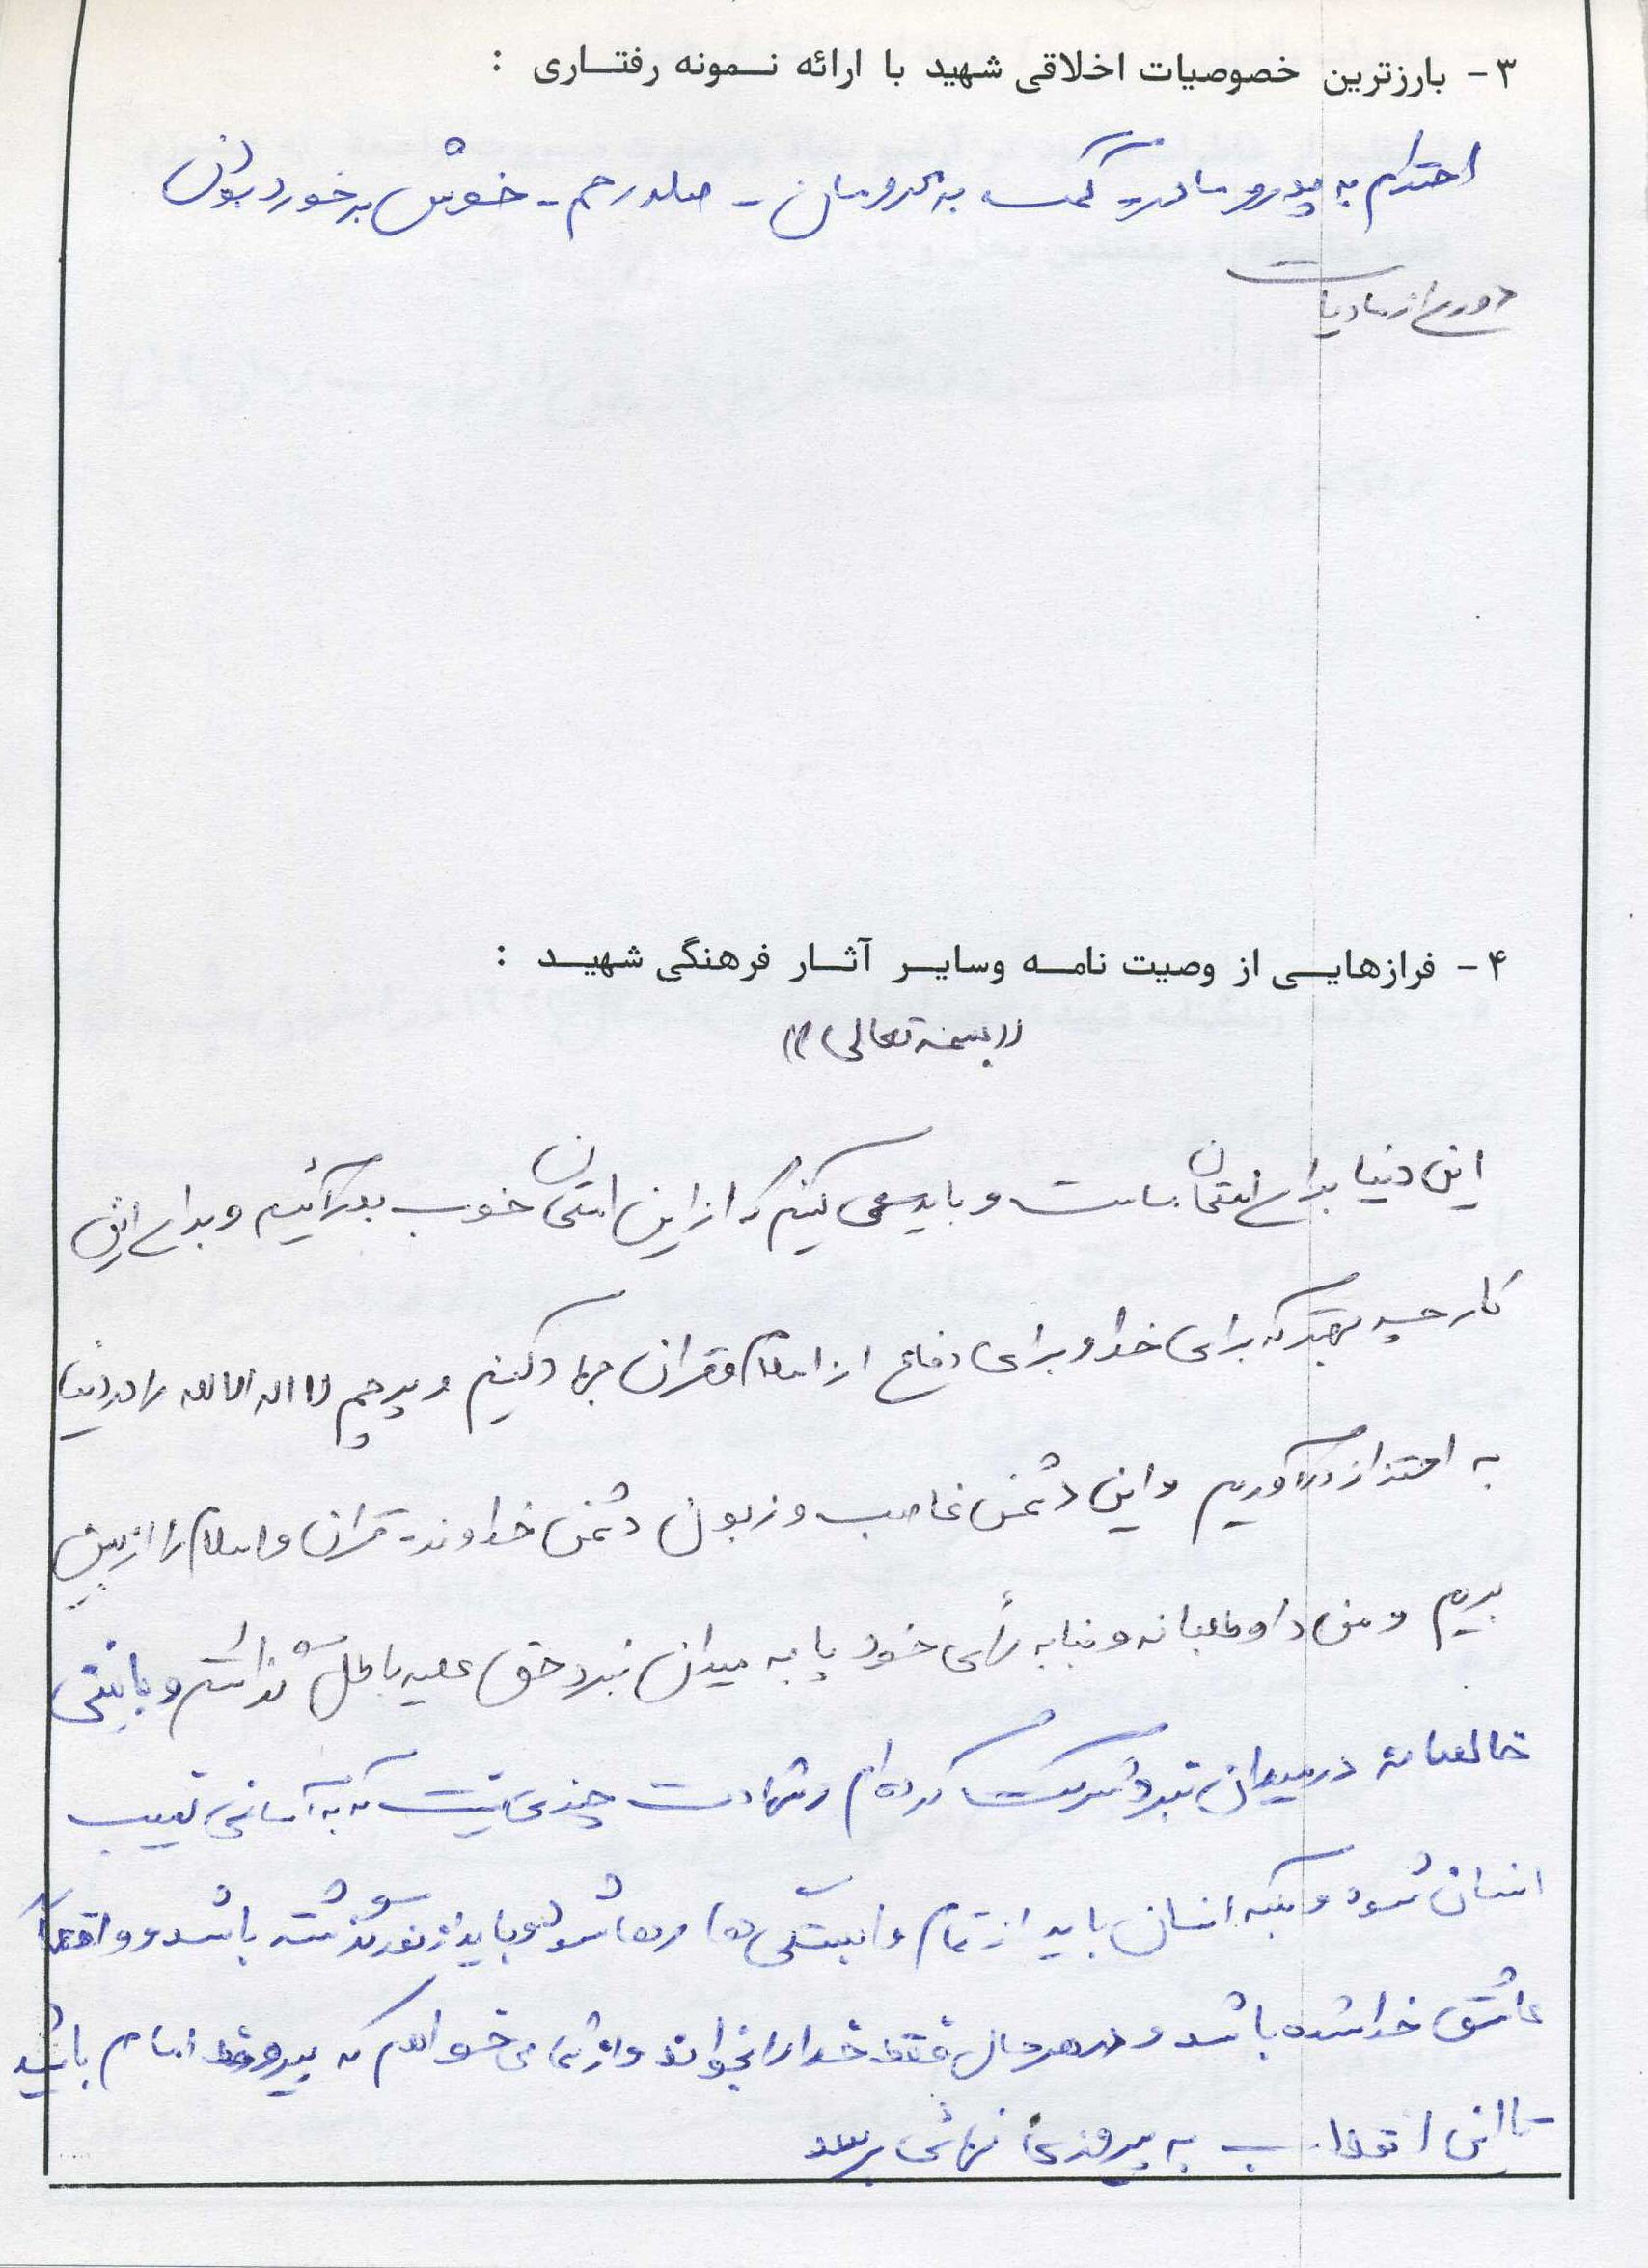 ۳- بارزترین خصوصیات اخلاقی شهید با ارائه نمونه رفتاری :
احترام به پدر و مادر - کمک به محرومان - صله رحم - خوش برخورد بودن
دوری از مادیات
۴- فرازهایی از وصیت نامه وسایر آثار فرهنگی شهید :
((بسمه تعالی))
این دنیا برای امتحان ماست و باید سعی کنیم که از این امتحان خوب بدر آئیم و برای این
کار چه بهتر که برای خدا و برای دفاع از اسلام و قران جهاد کنیم و پرچم لا اله الا الله را در دنیا
به اهتزاز در آوریم و این دشمن غاصب و زبون دشمن خداوند - قران و اسلام را از بین
بریم و من داوطلبانه و بنا به رأی خود پا به میدان نبرد حق علیه باطل گذاشتم و با نیتی
خالصانه در میدان نبرد شرکت کرده ام و شهادت چیزی نیست که به آسانی نصیب
انسان شود و بلکه انسان باید از تمام وابستگی ها رها شود و باید از خود گذشته باشد و واقعاً
عاشق خدا شده باشد و در هر حال فقط خدا را بخواند و از شما می خواهم که پیرو خط امام باشید
تا این انقلاب به پیروزی نهائی برسد